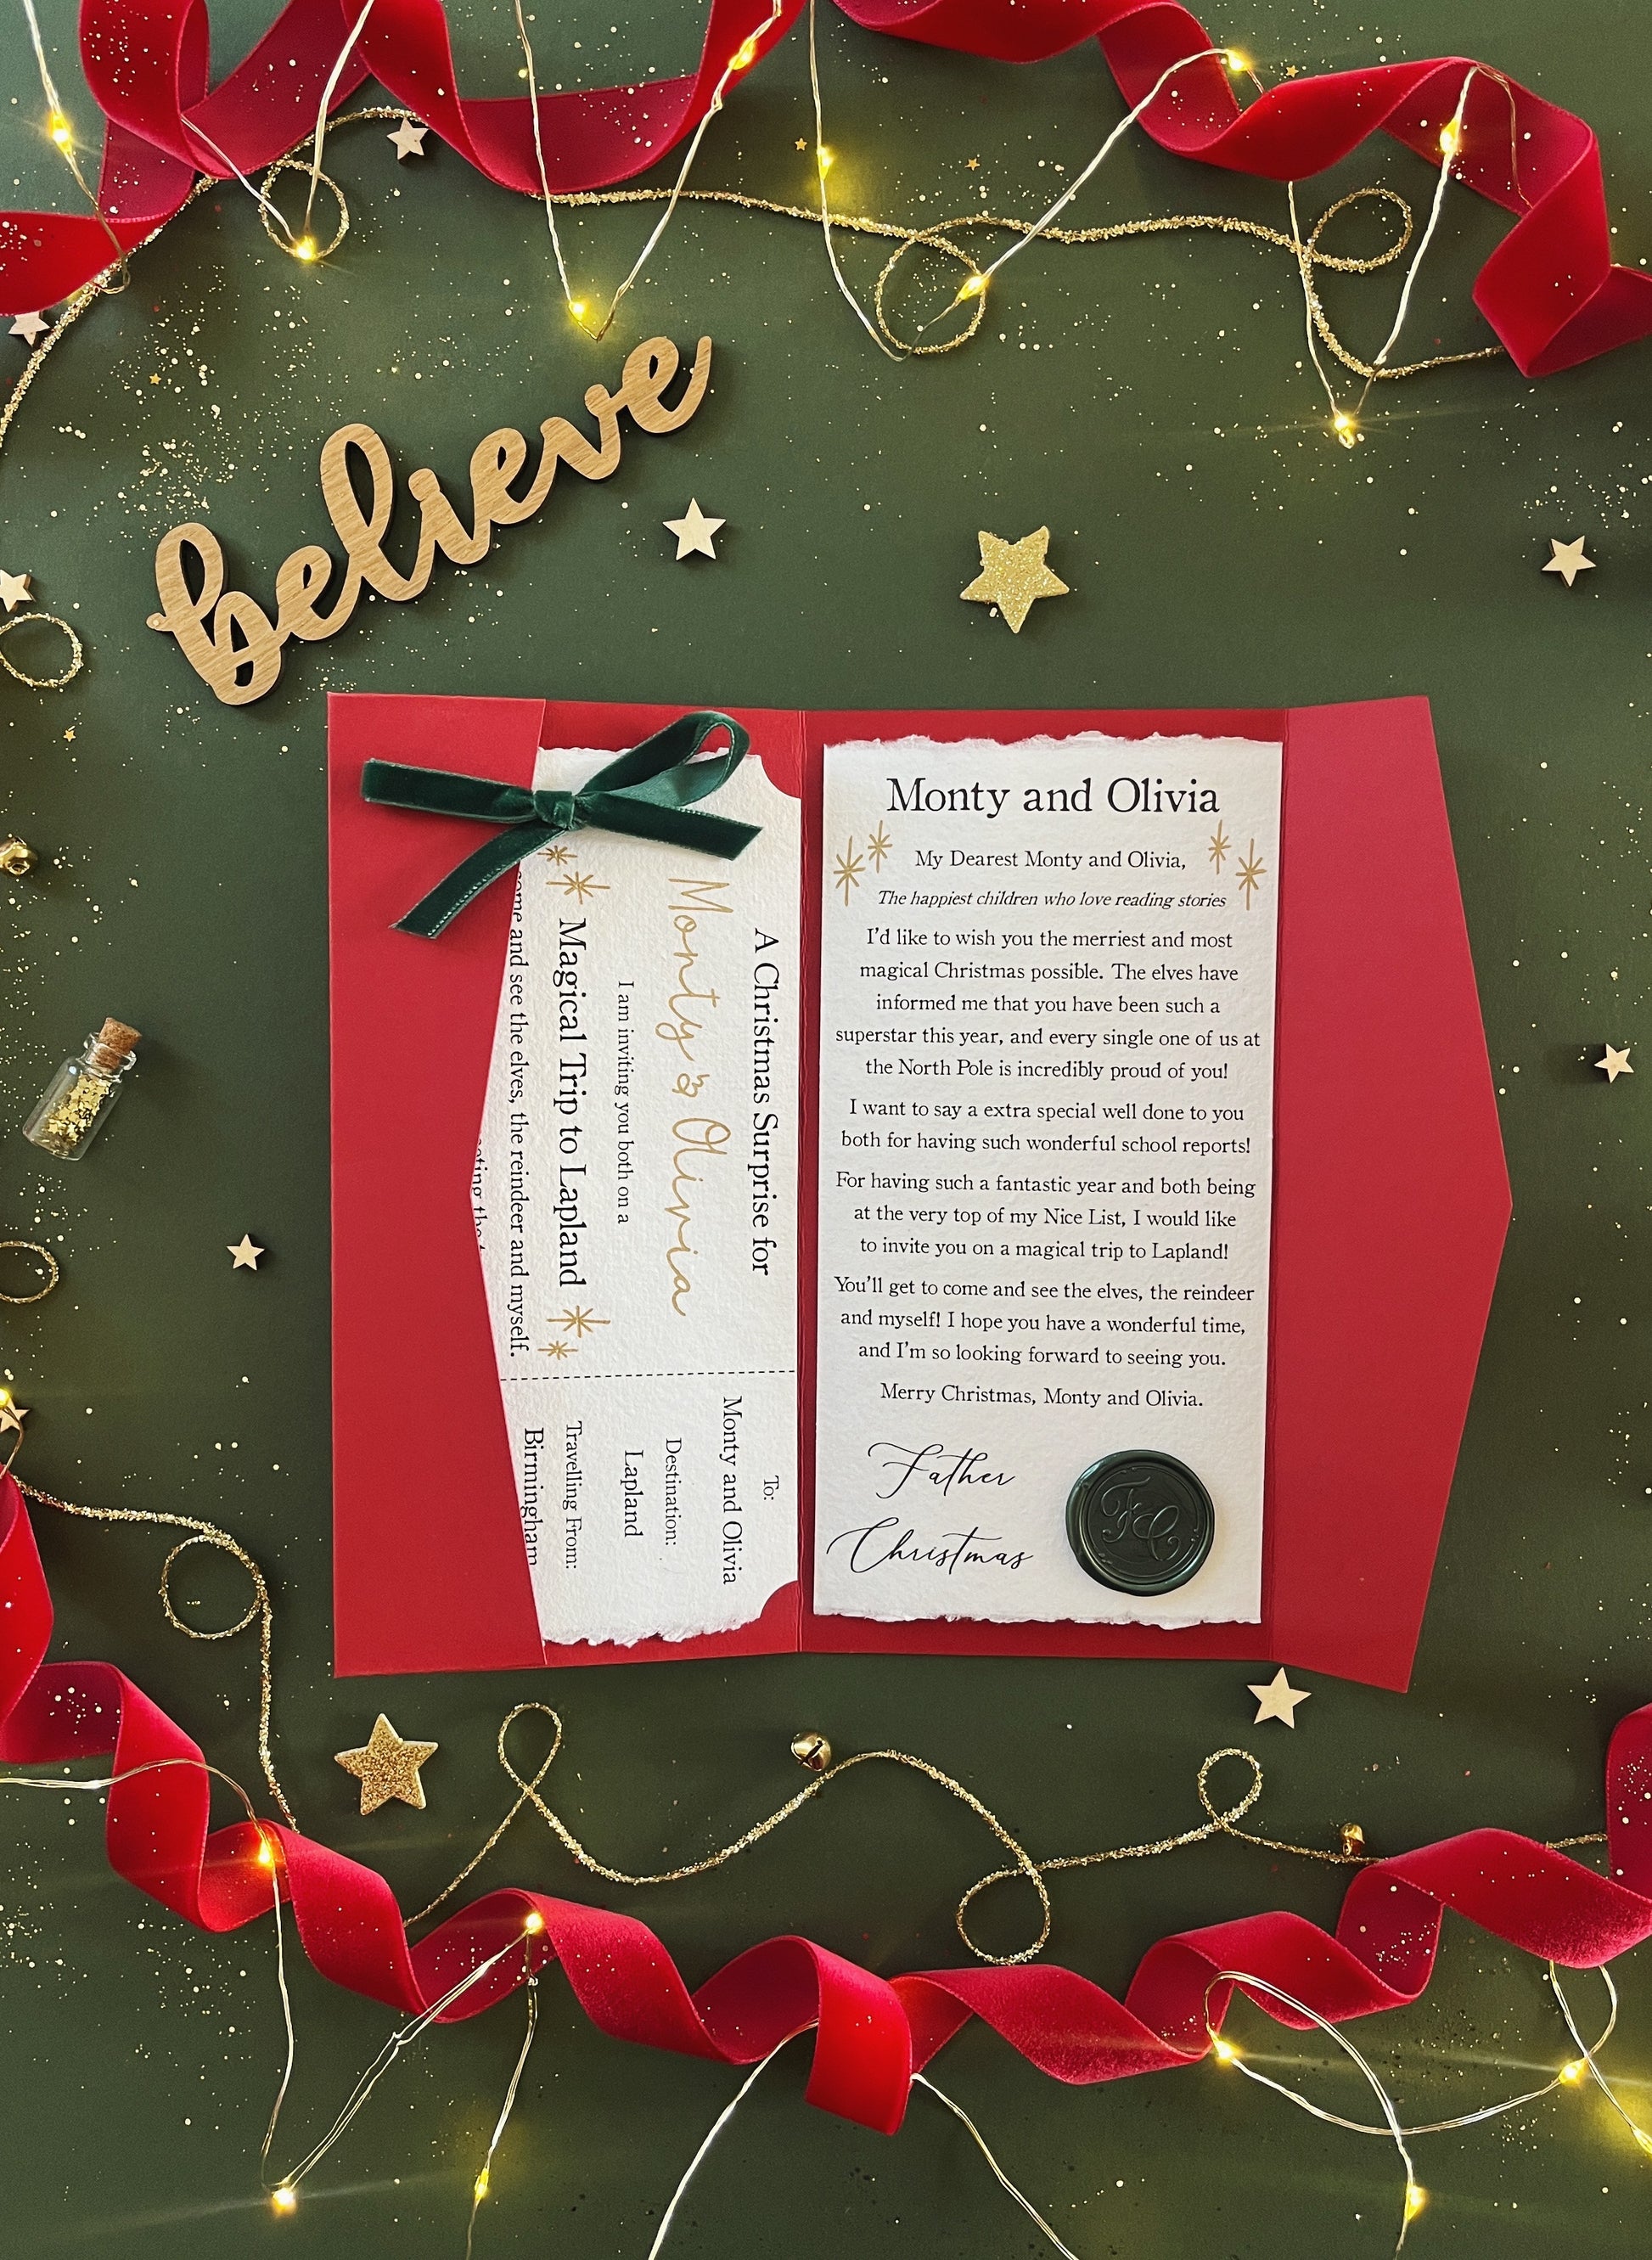 believe
A Christmas Surprise for
Monty & Olivia
I am inviting you both on a
Magical Trip to Lapland
and see the elves, the reindeer and myself.
To:
Monty and Olivia
Destination:
Lapland
Travelling From:
Birmingham
Monty and Olivia
My Dearest Monty and Olivia,
The happiest children who love reading stories
I'd like to wish you the merriest and most
magical Christmas possible. The elves have
informed me that you have been such a
superstar this year, and every single one of us at
the North Pole is incredibly proud of you!
I want to say a extra special well done to you
both for having such wonderful school reports!
For having such a fantastic year and both being
at the very top of my Nice List, I would like
to invite you on a magical trip to Lapland!
You'll get to come and see the elves, the reindeer
and myself! I hope you have a wonderful time,
and I'm so looking forward to seeing you.
Merry Christmas, Monty and Olivia.
Father
Christmas
FC